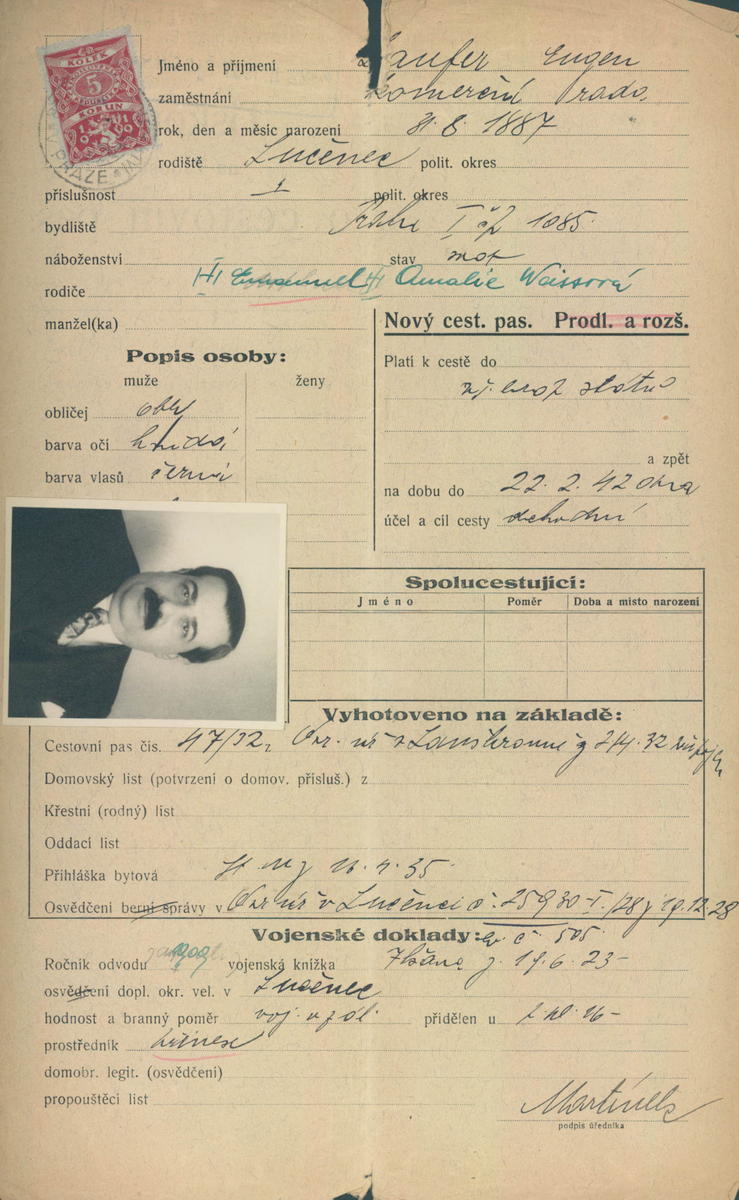 KOLEK
5
KORUN
PRAZE
Jméno a příjmení Laufer Eugen
zaměstnání komerční rada
rok, den a měsíc narození 31. 8. 1887
rodiště Lučenec polit. okres
příslušnost polit. okres
bydliště Praha I čp 1085.
náboženství stav
rodiče Emanuel Amalie Weissová
manžel(ka)
Nový cest. pas. Prodl. a rozš.
Popis osoby:
muže ženy
obličej obly
barva očí hnědá
barva vlasů černá
Platí k cestě do
států
a zpět
na dobu do 22. 2. 42
účel a cíl cesty obchodní
Spolucestující:
Jméno Poměr Doba a místo narození
Vyhotoveno na základě:
Cestovní pas čís. 47/32, Okr. úř v Lanškrouně 32
Domovský list (potvrzení o domov. přísluš.) z
Křestní (rodný) list
Oddací list
Přihláška bytová 35
Osvědčení berní správy v Okr úř v Lučenci č. 25930-I/28 z 19.12.28
Vojenské doklady: č. 505
Ročník odvodu vojenská knížka z. 19.6.23-
osvědčení dopl. okr. vel. v Lučenec
hodnost a branný poměr voj. v zál. přidělen u
prostředník
domobr. legit. (osvědčení)
propouštěcí list
podpis úředníka